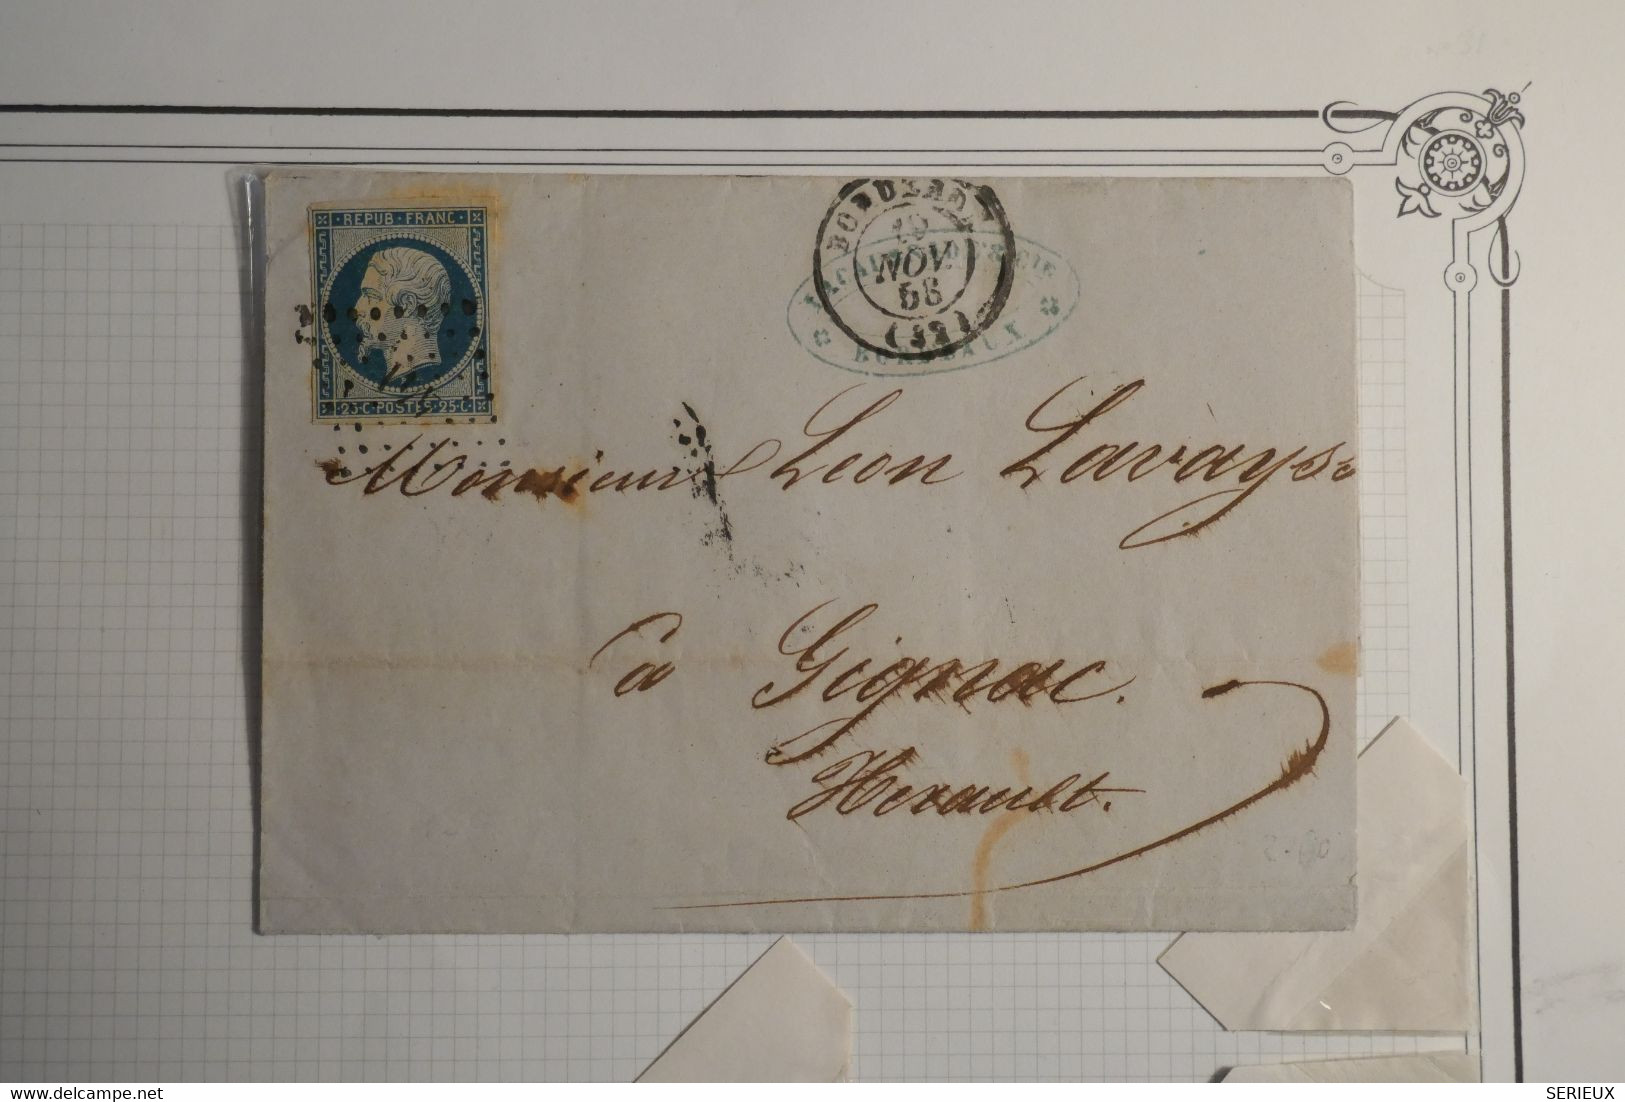 REPUB·FRANC·
25·C·POSTES·25·C·
BORDEAUX
19
NOV.
58
(32)
& CIE
BORDEAUX
Monsieur Léon Lavaysse
à Gignac.
Herault.
www.delcampe.net
SERIEUX